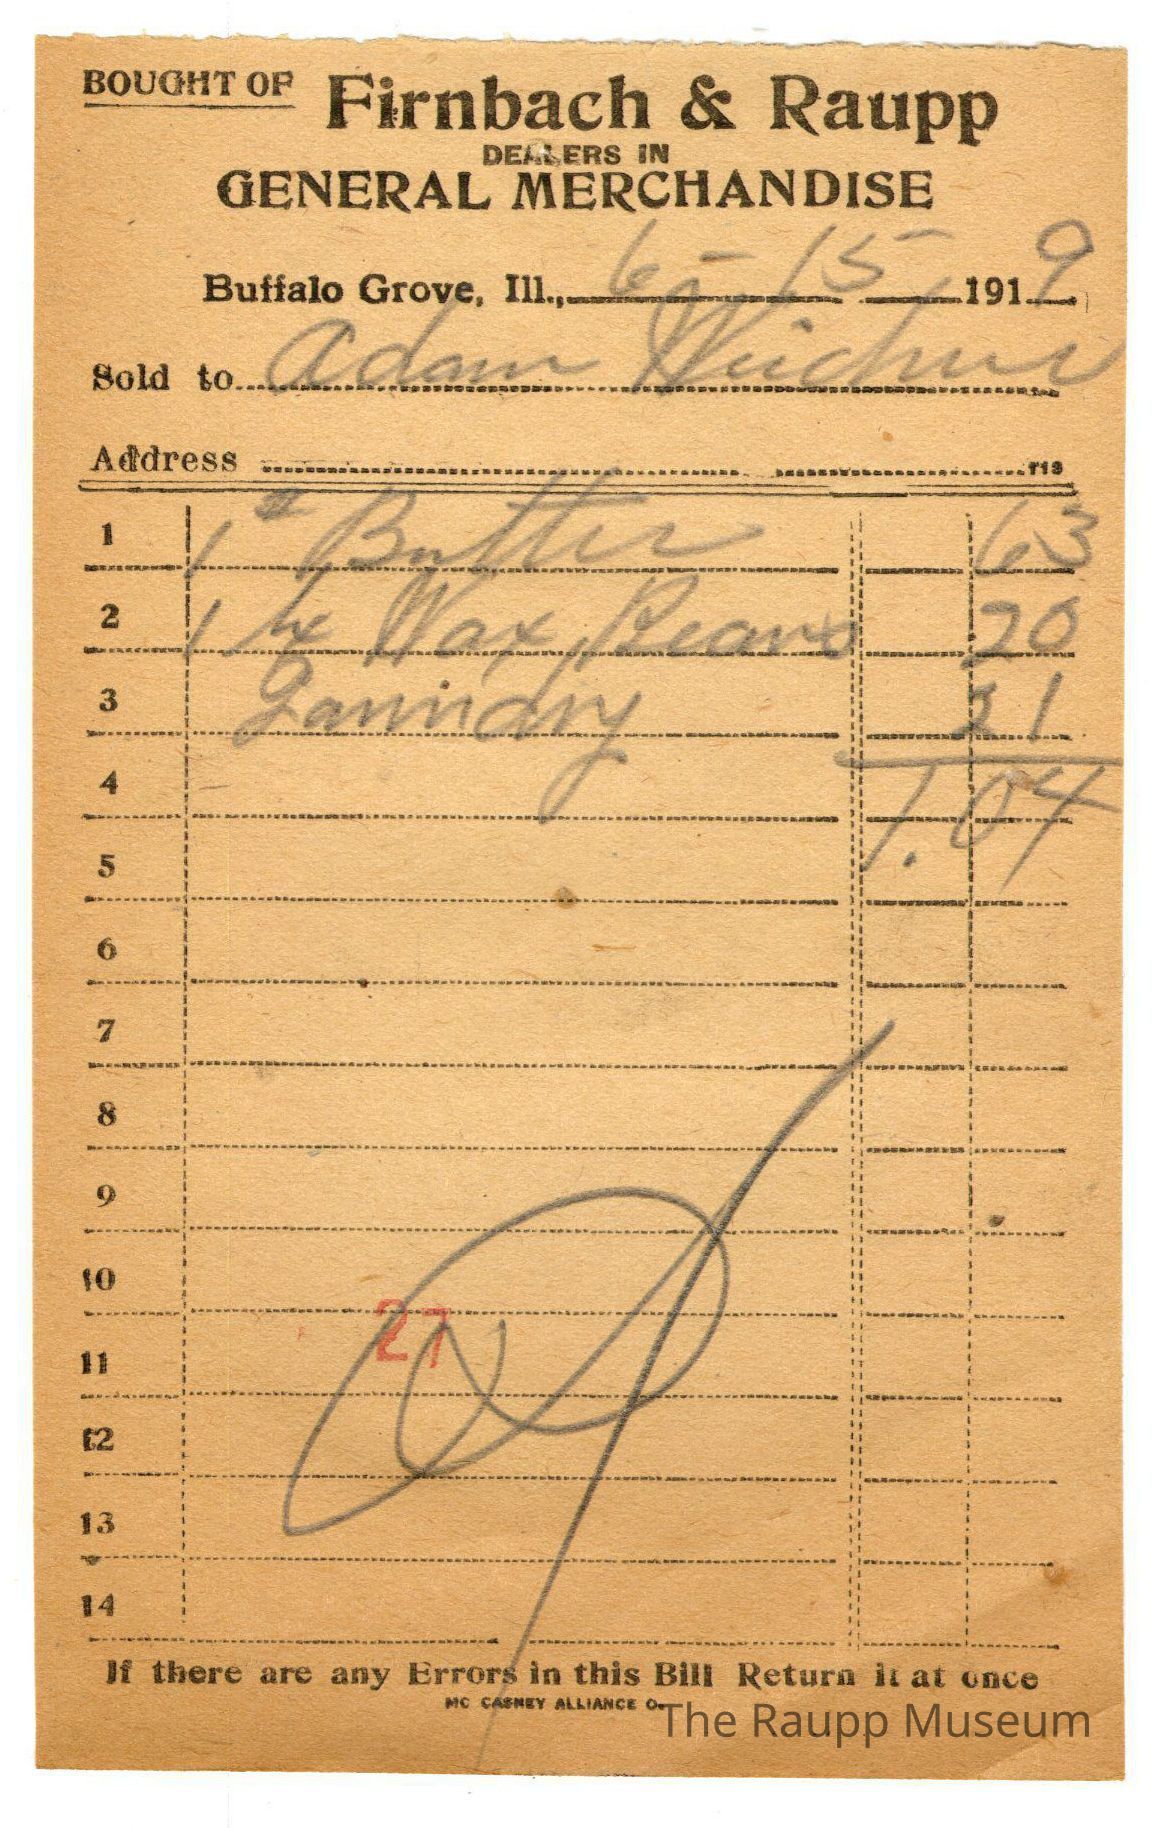 BOUGHT OF Firnbach & Raupp
DEALERS IN
GENERAL MERCHANDISE
Buffalo Grove, Ill., 6-15- 1919
Sold to Adam
Address 719
1 1# Butter 63
2 1 Wax Beans 20
3 21
4 1.04
5
6
7
8
9
10
27
11
12
13
14
If there are any Errors in this Bill Return it at once
MC CASKEY ALLIANCE O.
The Raupp Museum